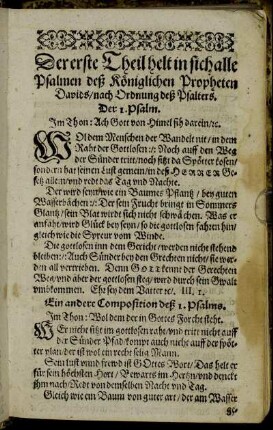 Der erste Theil helt in sich alle
Psalmen deß Königlichen Propheten
Davids/nach Ordnung deß Psalters.
Der 1. Psalm.
Im Thon: Ach Gott von Himel sih darein/rc.
WOl dem Menschen der Wandelt nit/in dem
Raht der Gottlosen:/: Noch auff den Weg
der Sünder tritt/noch sitzt da Spötter kosen/
sonders hat seinen Lust gemein/in deß HERREN Ge-
setz allein/vnd redt das Tag vnd Nachte.
Der wird sein wie ein Baumes Pflantz/bey guten
Wasserbächen:/: Der sein Frucht bringt in Sommers
Glantz/sein Blat wirdt sich nicht schwächen. Was er
anfaht wird Glück bey seyn/so die gottlosen fahren hin/
gleich wie die Sprew vom Winde.
Die gottlosen inn dem Gericht/werden nicht stehend
bleiben:/: Auch Sünder bey den Grechten nicht/sie wer-
den all vertrieben. Denn Gott kennt der Gerechten
Weg/vnd aber der gottlosen steg/wird durch sein Gwalt
vmbkommen. Ehr sey dem Vatter rc. III, 1.
Ein andere Composition deß 1. Psalms.
Im Thon: Wol dem der in Gottes Forcht steht.
WEr nicht sitzt im gottlosen raht/vnd tritt nicht auff
der Sünder Pfad/kompt auch nicht auff der spöt-
ter plan/der ist wol ein recht selig Mann.
Sein lust vnnd frewd ist GOttes Wort/Das helt er
für sein höchsten Hort/Bewarts im Hertzn/vnd denckt
ihm nach/Redt von demselben Nacht vnd Tag.
Gleich wie ein Baum von guter art/der am Wasser